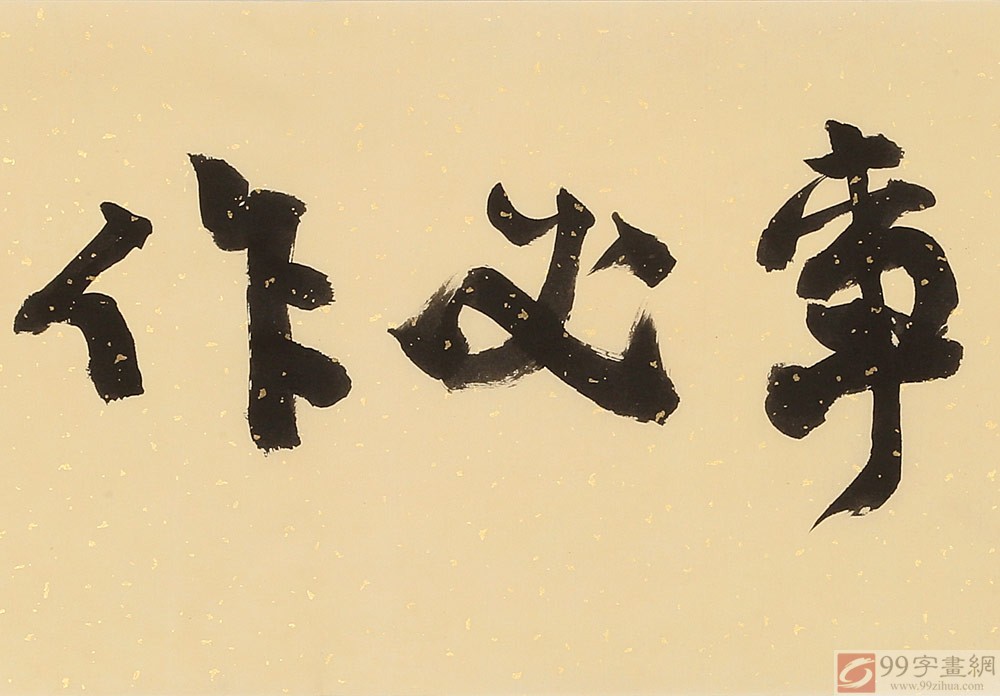 事必作
99字畫網
www.99zihua.com